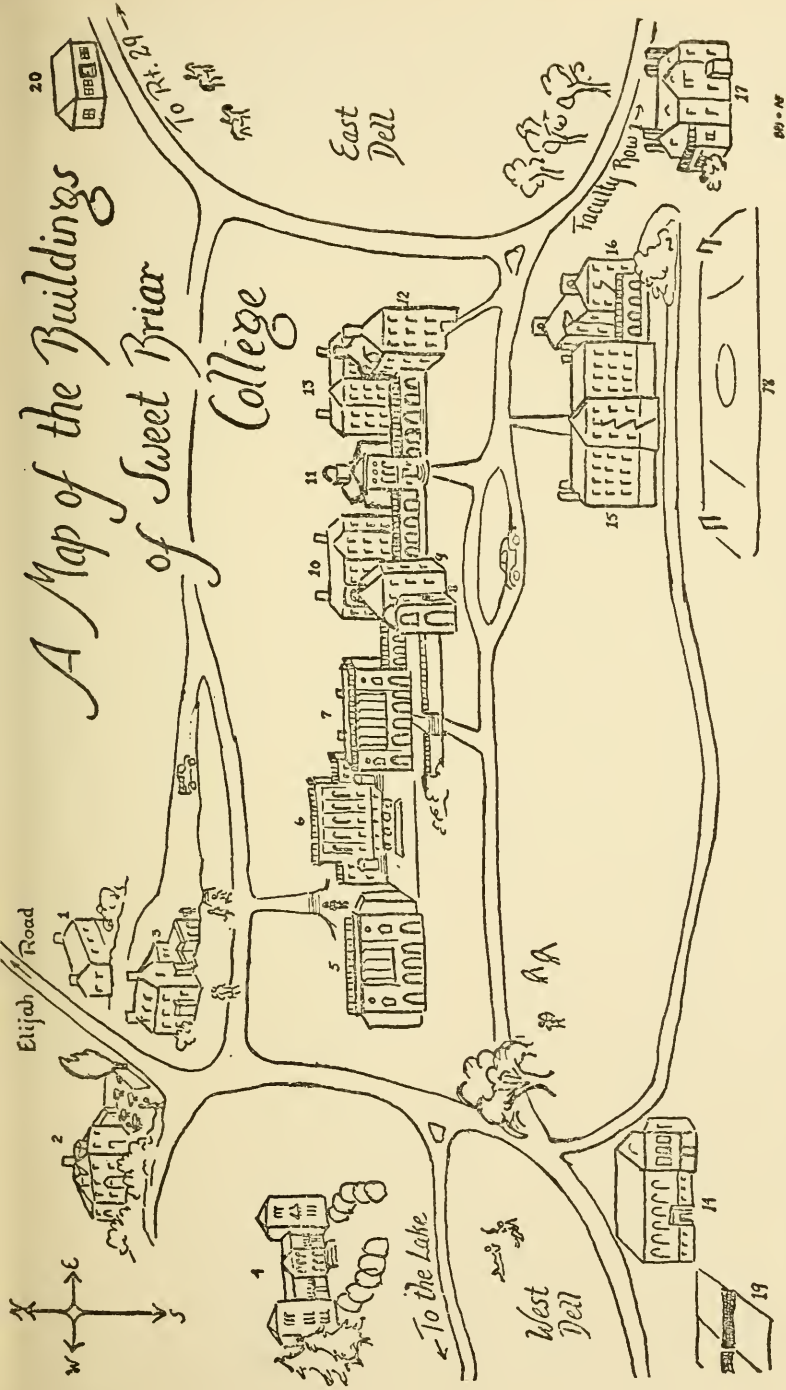 A Map of the Buildings
of Sweet Briar
College
N
W
E
S
Elijah Road
To Rt. 29
East
Dell
Faculty Row
To the Lake
West
Dell
1
2
3
4
5
6
7
8
9
10
11
12
13
14
15
16
17
18
19
20